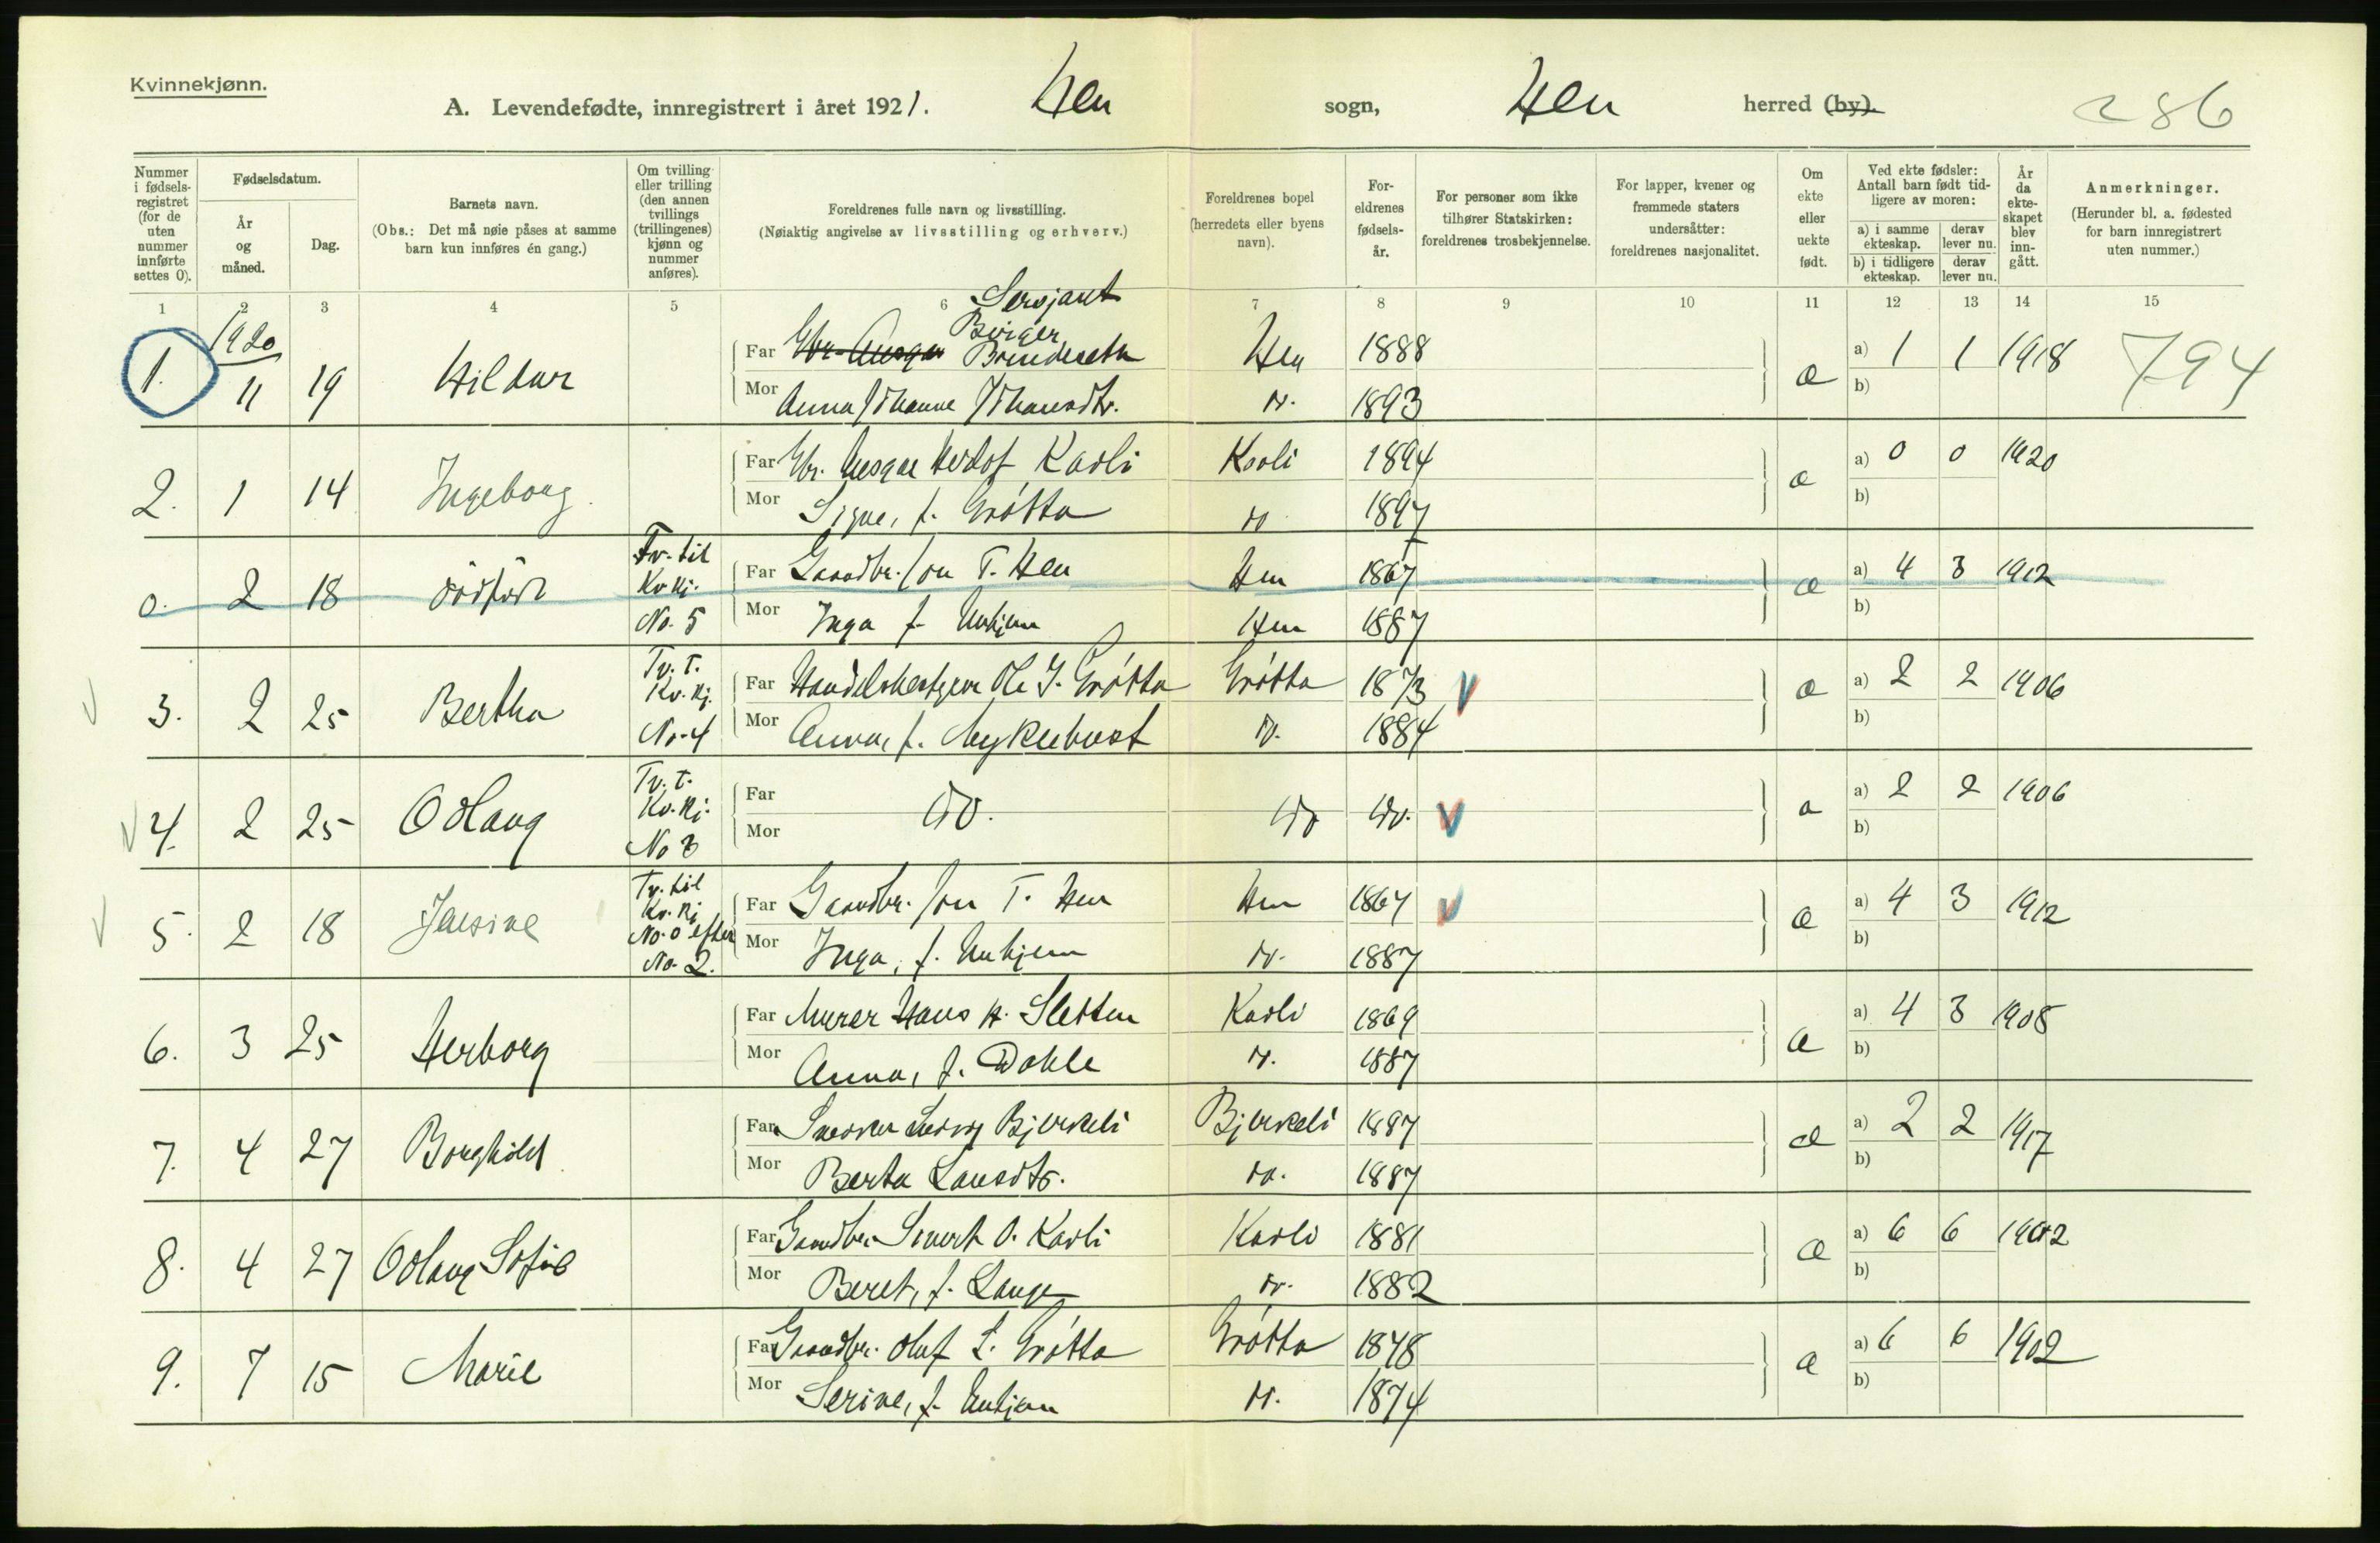 Kvinnekjønn.
A. Levendefødte, innregistrert i året 1921. Hen sogn, Hen herred (by). 286
Nummer i fødsels-registret (for de uten nummer innførte settes 0).
Fødselsdatum.
År og måned.
Dag.
Barnets navn.
(Obs.: Det må nøie påses at samme barn kun innføres én gang.)
Om tvilling eller trilling (den annen tvillings (trillingenes) kjønn og nummer anføres).
Foreldrenes fulle navn og livsstilling.
(Nøiaktig angivelse av livsstilling og erhverv.)
Foreldrenes bopel (herredets eller byens navn).
For-eldrenes fødsels-år.
For personer som ikke tilhører Statskirken: foreldrenes trosbekjennelse.
For lapper, kvener og fremmede staters undersåtter: foreldrenes nasjonalitet.
Om ekte eller uekte født.
Ved ekte fødsler: Antall barn født tid-ligere av moren:
a) i samme ekteskap.
derav lever nu.
b) i tidligere ekteskap.
derav lever nu.
År da ekte-skapet blev inn-gått.
Anmerkninger.
(Herunder bl. a. fødested for barn innregistrert uten nummer.)
1 2 3 4 5 6 7 8 9 10 11 12 13 14 15
1. 1920 11 19 Hildur
Far Sersjant Birger Hen 1888
Mor Anna Johanne Johansdtr. do. 1893
a a) 1 1 1918 794
b)
2. 1 14 Ingeborg
Far Gbr. Herlof Kavli Kavli 1894
Mor Signe, f. Grótta do 1897
a a) 0 0 1920
b)
0. 2 18 dödfödt Tv. til Kv.kj. No. 5
Far Gaardbr. Jon T. Hen Hen 1867
Mor Inga f. Unhjem Hen 1887
a a) 4 3 1912
b)
3. 2 25 Bertha Tv. t. Kv.kj. No. 4
Far Handelsbestyrer Ole J. Grótta Grótta 1873 V
Mor Anna, f. Myklebust do. 1884
a a) 2 2 1906
b)
4. 2 25 Odlaug Tv. t. Kv.kj. No 3
Far do. do do. V
Mor
a a) 2 2 1906
b)
5. 2 18 Jensine Tv. til Kv.kj No. 0 efter No. 2.
Far Gaardbr. Jon T. Hen Hen 1867 V
Mor Inga, f. Unhjem do. 1887
a a) 4 3 1912
b)
6. 3 25 Herborg
Far Murer Hans H. Sletten Kavli 1869
Mor Anna, f. Dahle do. 1887
a a) 4 3 1908
b)
7. 4 27 Borghild
Far Bjerkeli Bjerkeli 1887
Mor Berta Larsdtr. do. 1887
a a) 2 2 1917
b)
8. 4 27 Odlaug Sofie
Far Gaardbr. Sivert O. Kavli Kavli 1881
Mor Beret, f. Lange do. 1882
a a) 6 6 1902
b)
9. 7 15 Marie
Far Gaardbr. Oluf L. Grótta Grótta 1848
Mor Serine, f. Unhjem do. 1874
a a) 6 6 1902
b)